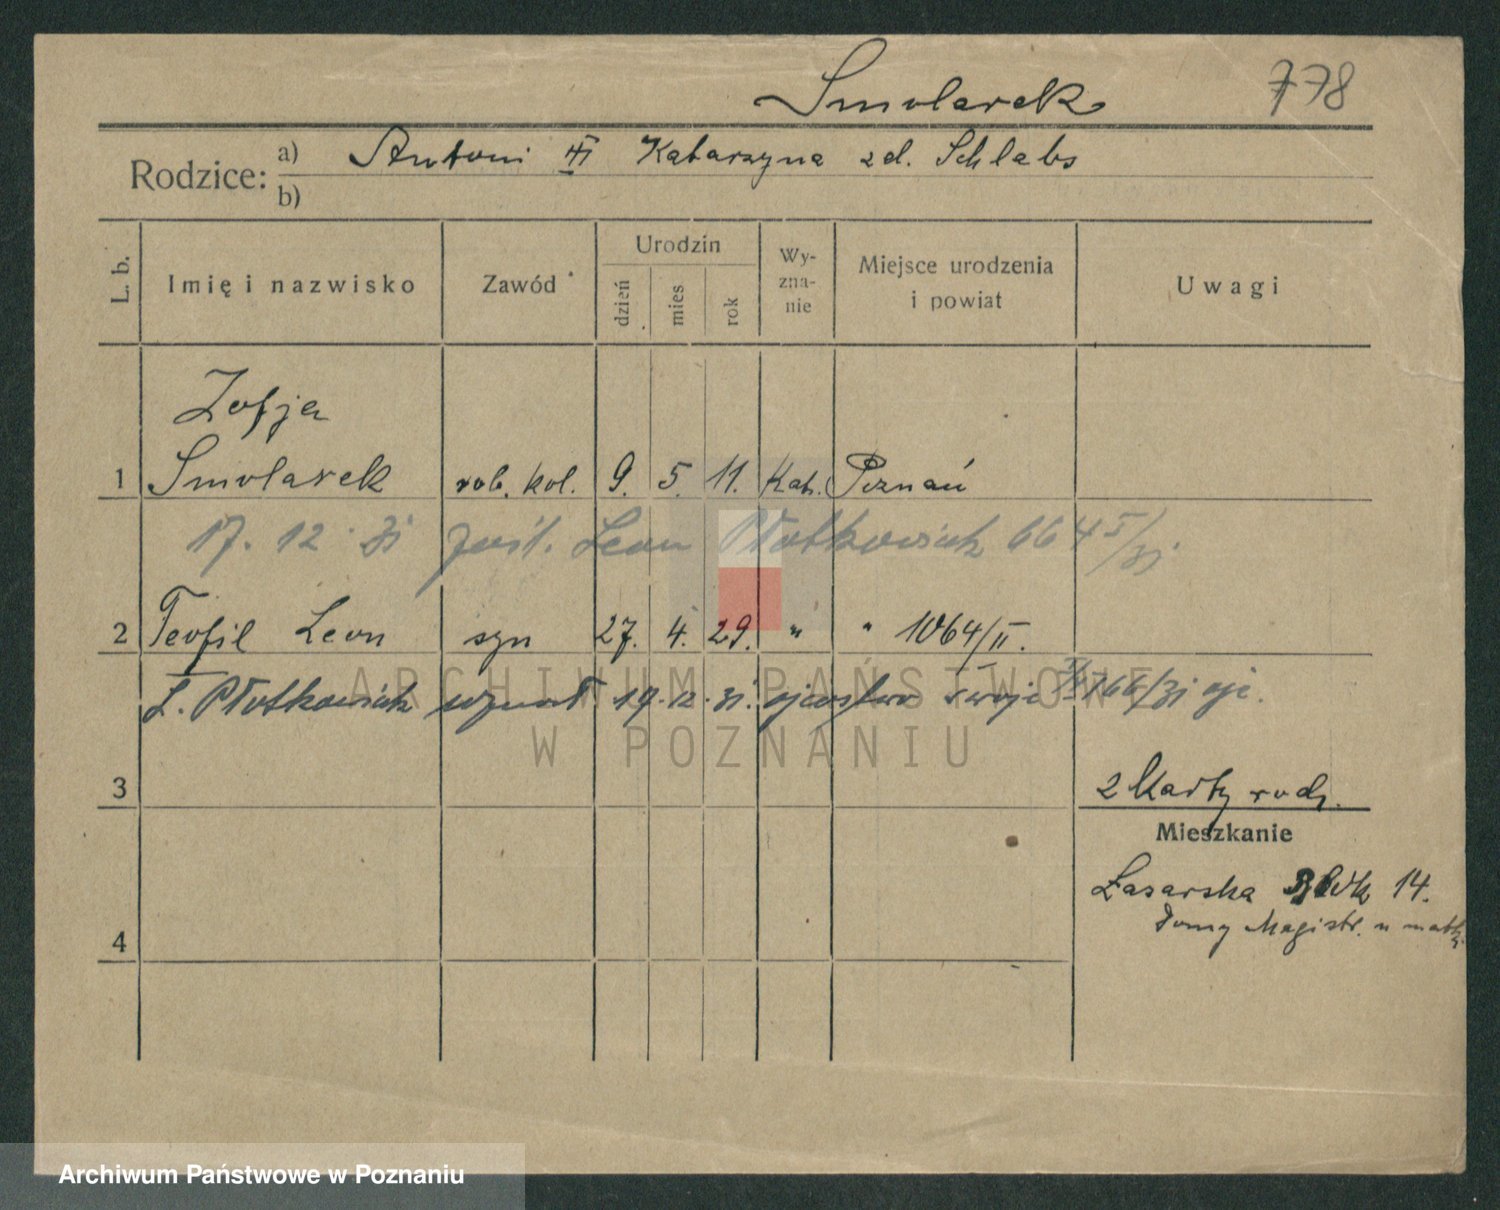 Smolarek 778
Rodzice: a) Antoni III Katarzyna zd. Schlabs
b)
L. b. Imię i nazwisko Zawód Urodzin dzień mies rok Wy-zna-nie Miejsce urodzenia i powiat Uwagi
Zofja
1 Smolarek rob. kol. 9. 5. 11. Kat. Poznań
17. 12. 31 Leon Płotkowiak 664 5/31
2 Teofil Leon syn 27. 4. 29. " " 1064/II.
L. Płotkowiak uznał 19. 12. 31. ojcostwo swoje 766/31
3 2 Karty rodz.
Mieszkanie
Łazarska 14.
Domy Magistr.
4
ARCHIWUM PAŃSTWOWE
W POZNANIU
Archiwum Państwowe w Poznaniu